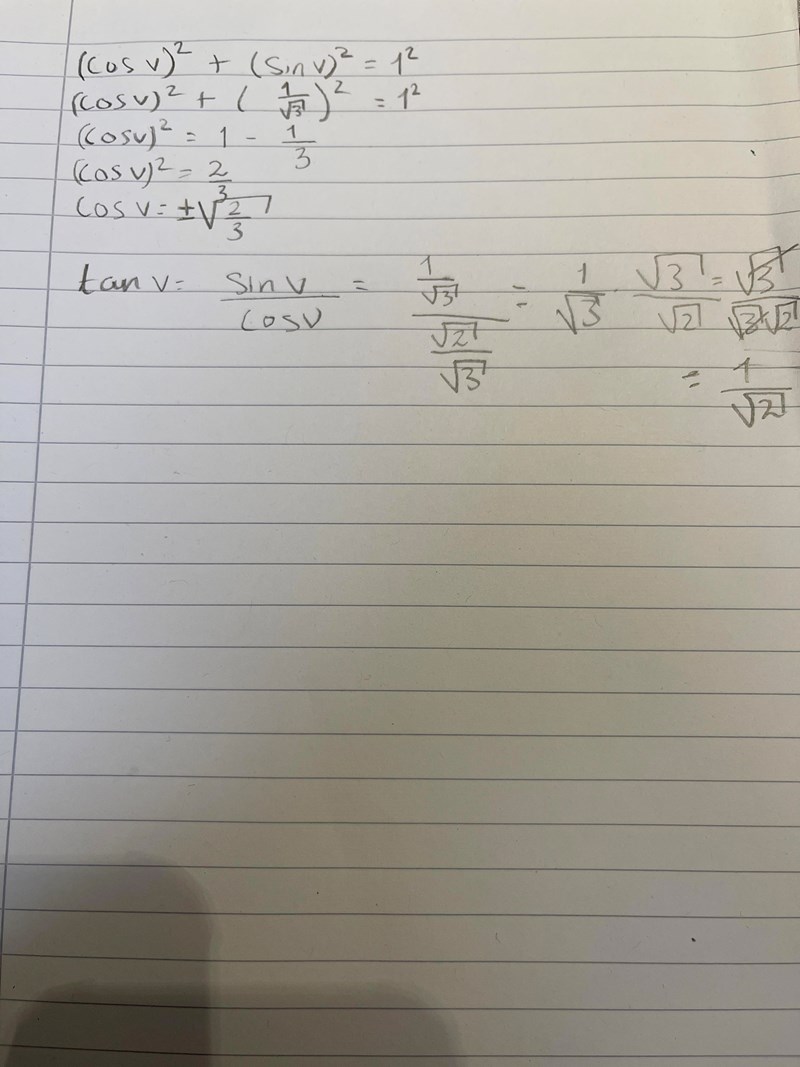 (cos v)² + (sin v)² = 1²
(cos v)² + (1/√3)² = 1²
(cos v)² = 1 - 1/3
(cos v)² = 2/3
cos v = ±√(2/3)
tan v = sin v / cos v = (1/√3)/(√2/√3) = 1/√3 · √3/√2 = √3/(√3·√2)
= 1/√2